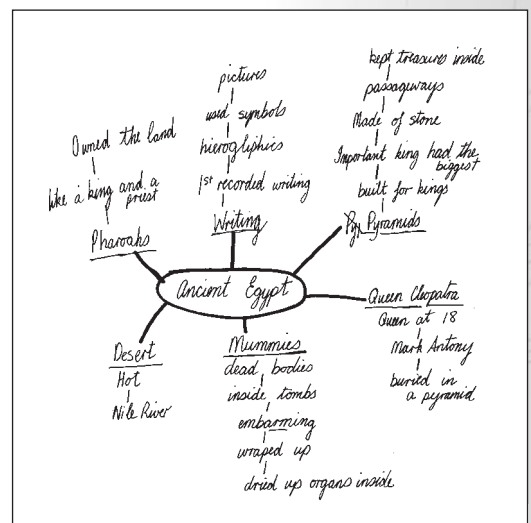 Ancient Egypt
Pharoahs
like a king and a
priest
Owned the land
Writing
1st recorded writing
hierogliphics
used symbols
pictures
Pyramids
built for kings
Important king had the
biggest
Made of stone
passageways
kept treasures inside
Queen Cleopatra
Queen at 18
Mark Antony
buried in
a pyramid
Mummies
dead bodies
inside tombs
embarming
wraped up
dried up organs inside
Desert
Hot
Nile River